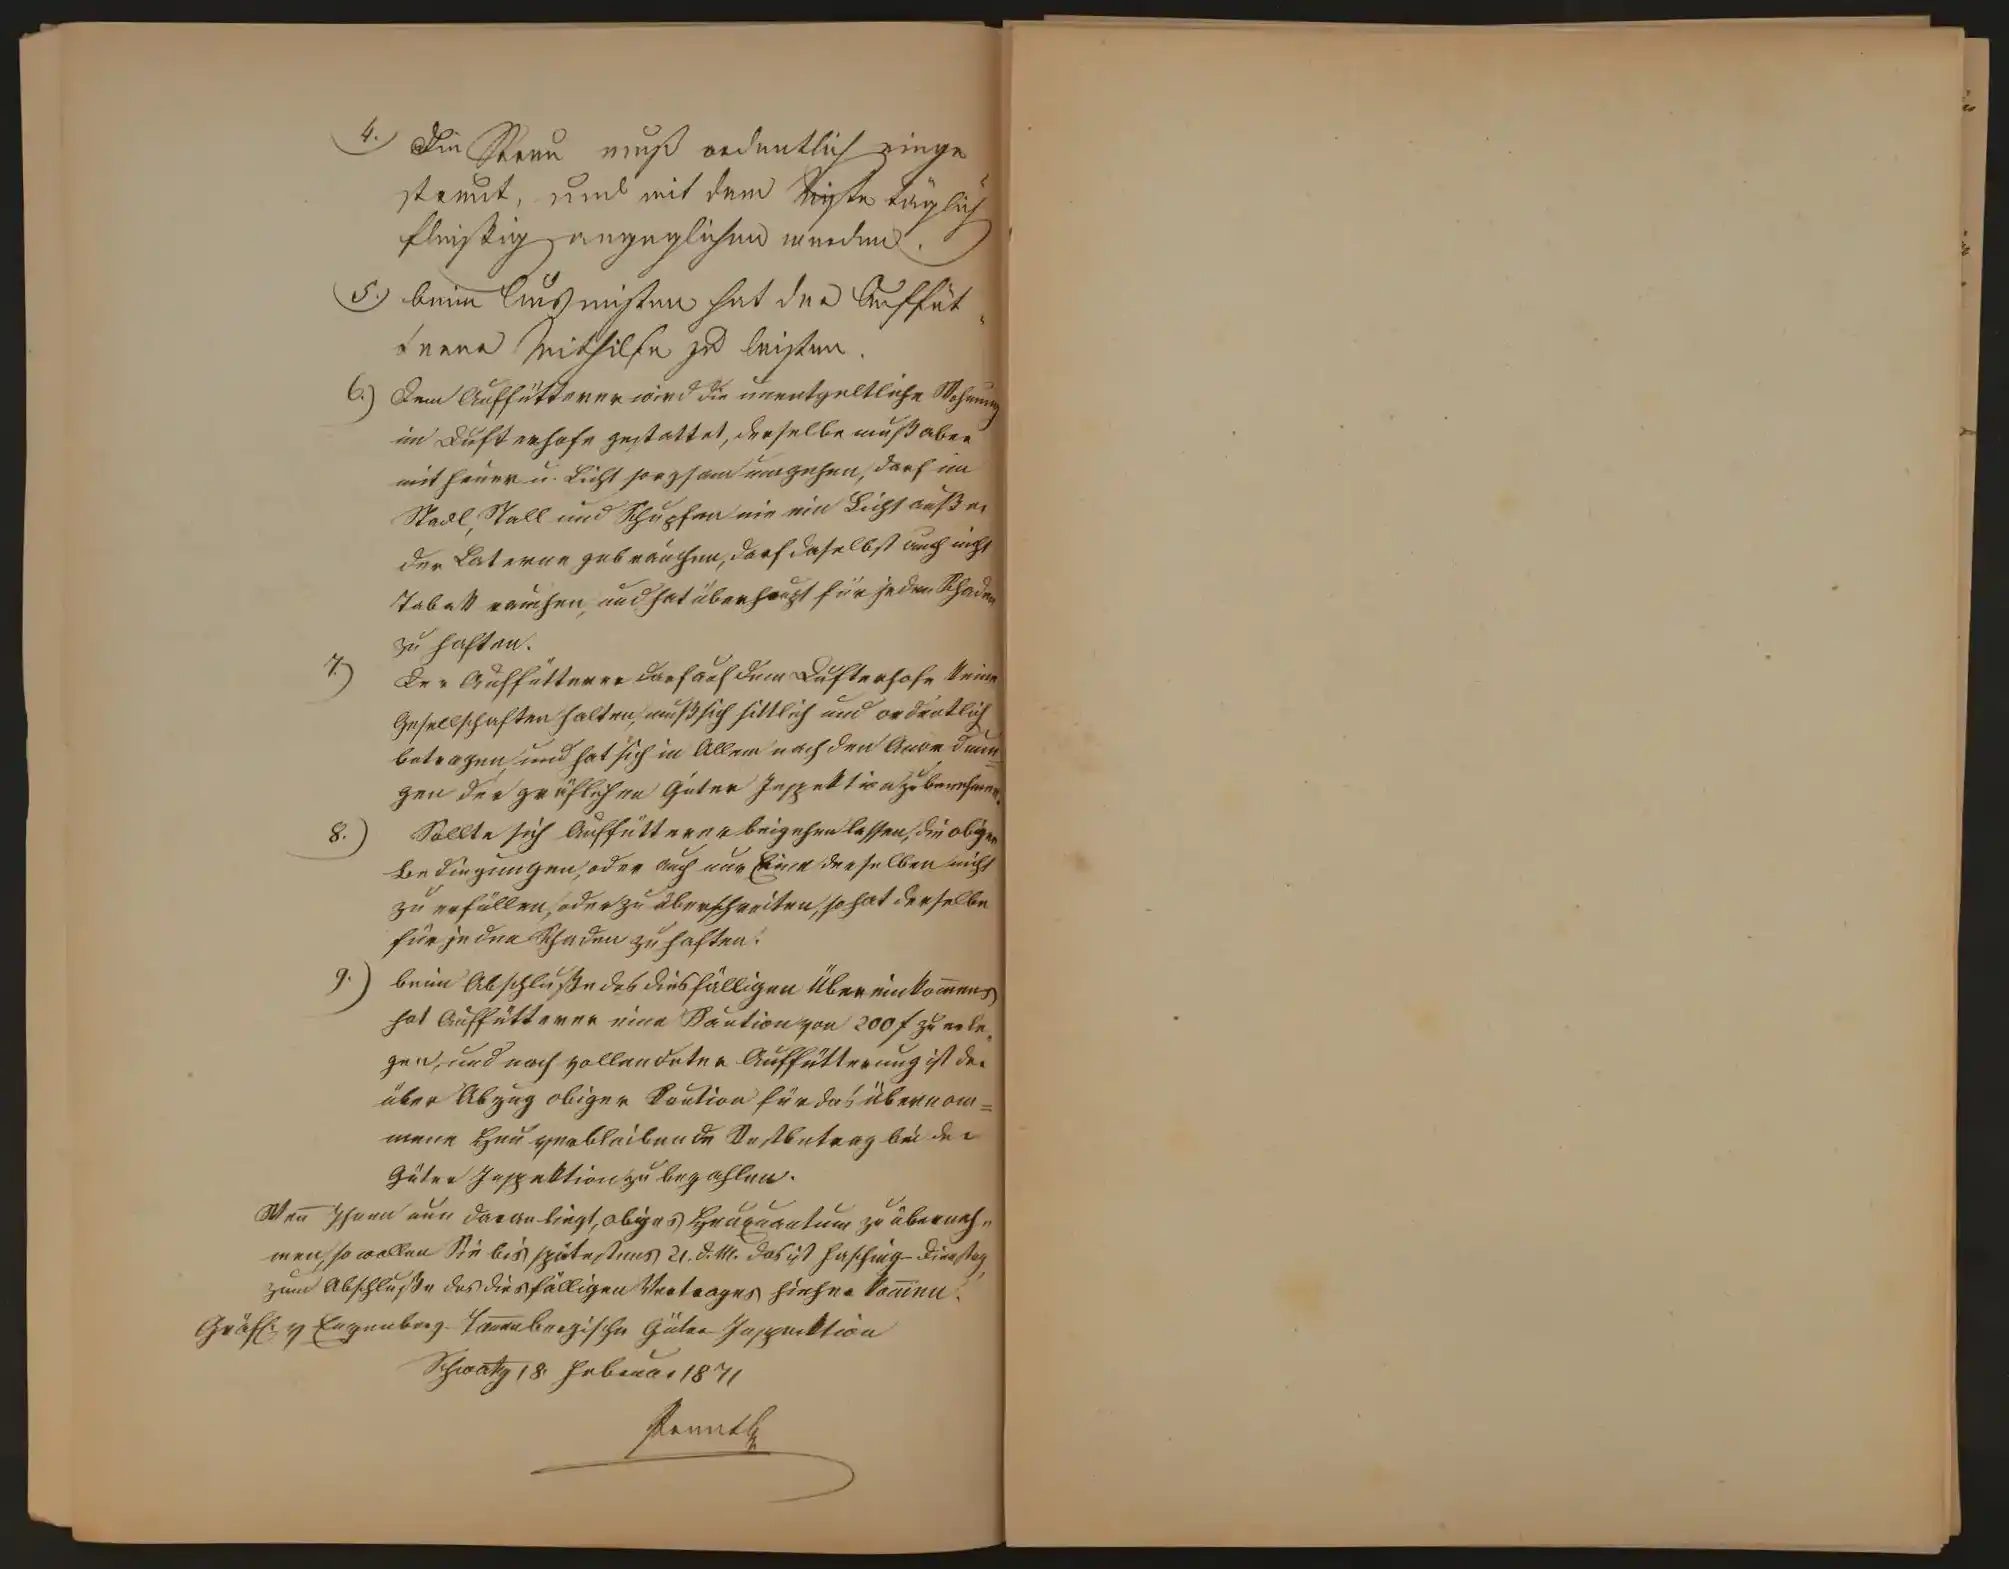 4.) Die Streu muß ordentlich einge
streut, und mit dem Miste täglich
fleißig angeglichen werden.
5.) beim Ausmisten hat der Auffüt„
terer Mithilfe zu leisten.
6.) Dem Auffütterer wird die unentgeltliche Wohnung
im Dufterhofe gestattet, derselbe muß aber
mit Feuer u. Licht sorgsam umgehen, darf im
Stadl, Stall und Schupfen nie ein Licht außer
der Laterne gebrauchen, darf daselbst auch nicht
Tabak rauchen, und hat überhaupt für jeden Schaden
zu haften.
7.) Der Auffütterer darf auf dem Dufterhofe keine
Gesellschaften halten, muß sich sittlich und ordentlich
betragen, und hat sich in Allem nach den Anordnun=
gen der gräflichen Güter Inspektion zu benehmen.
8.) Sollte sich Auffütterer beigehen lassen, die obigen
Bedingungen, oder auch nur Eine derselben nicht
zu erfüllen, oder zu überschreiten, so hat derselbe
für jeden Schaden zu haften.
9.) beim Abschluße des diesfälligen Übereinkom̄ens
hat Auffütterer eine Kaution von 200 f zu erle„
gen, und nach vollendeter Auffütterung ist der
über Abzug obiger Kaution für das übernom=
mene Heu verbleibende Restbetrag bei der
Güter Inspektion zu bezahlen.
Wen̄ Ihnen nun daran liegt, obiges Heuquantum zu überneh„
men, so wollen Sie bis spätestens 21. d. M. das ist Fasching-Dienstag,
zum Abschluße des diesfälligen Vertrages hieher kom̄en.
Gräfl. v Enzenberg-Tan̄enbergische Güter-Inspektion
Schwatz 18. Februar 1871